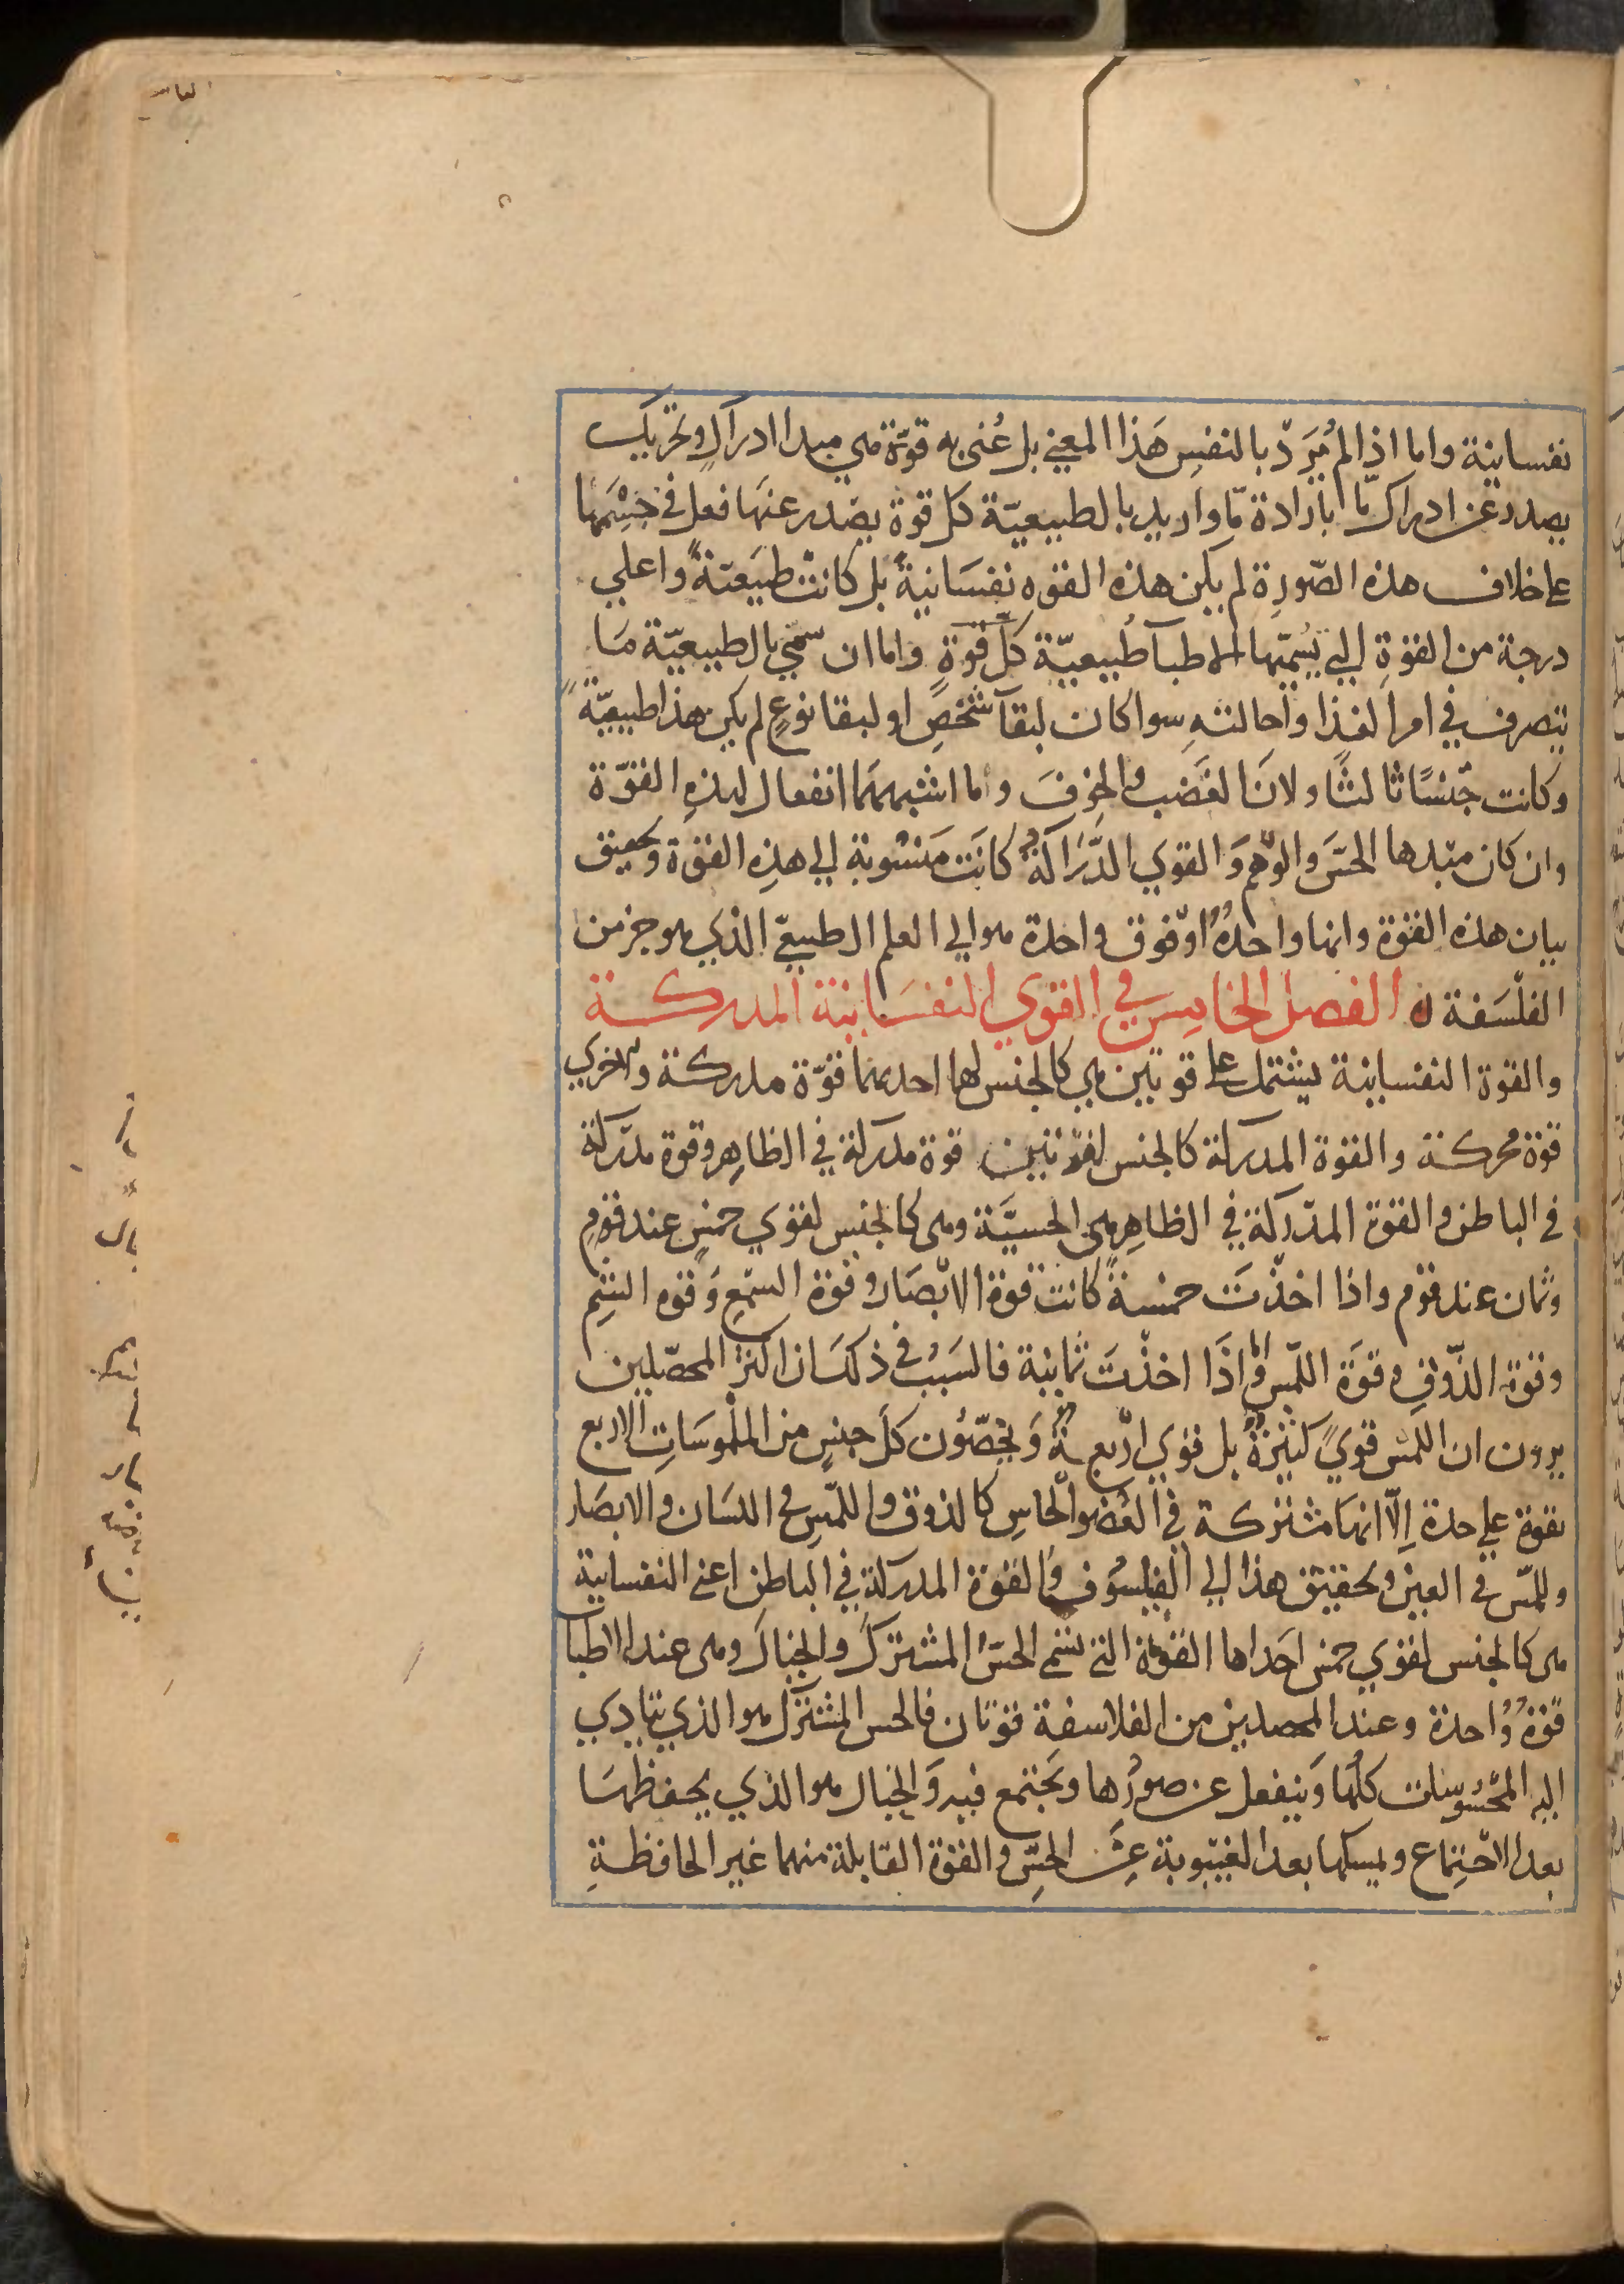 نفسانية واما اذا لم يُرَدّ بالنفسِ هَذا المعني بل عُنى به قوّة هي مبدا ادراكٍ وتحريك
يصدر عن ادراك مّا بارادة مّا واريد بالطبيعيّة كل قوة يصْدر عنهَا فعل في جِسْمِها
على خلاف هذه الصّورة لم يكن هذه القوه نفسَانيةً بل كانتْ طبيعيّةً واعلي
درجة من القوةِ التي يُسمّيها الاطبآ طبيعيّة كلّ قوةٍ واما ان سمّي بالطبيعيّة مَا
يتصرف في امر الغذا واحالتهِ سوا كان لبقآ شخصٍ او لبقا نوعٍ لم يكن هذا طبيعيّةً
وكانت جنسًا ثالثًا ولانَ الغَضب والخوفَ واما اشبههمَا انفعال لهذهِ القوّة
وان كان مبدها الحسَّ والوَهم وَالقوي الدّرَاكةُ كانَت منسُوبة الي هذِه القوة وتحقيق
بيان هذه القوة وانها واحدةٌ او فوق واحدة هوالي العلم الطبيعيّ الذي هو جز من
الفلْسَفة ه الفصل الخامِس في القوي النفسَانية المدركة
والقوة النفسانية يشتمل على قوتين هي كالجنس لهما احدىهما قوّة مدركة والاخري
قوّة محركة والقوة المدركة كالجنس لقوتين قوة مدركة في الظاهِر وقوة مدَركة
في الباطن والقوة المدّركة في الظاهِر هي الحسيَّة وهى كالجنس لقوي خمسٍ عند قومٍ
وثمان عند قوم واذا اخذْتَ خمسةً كانت قوة الابْصَار وقوة السّمعِ وَقوه الشّمِ
وقوة الذّوقِ وقوَة اللّمسِ واما اذَا اخذْتَ ثمانية فالسَببُ في ذلكَ ان اكثر المحصّلين
يرون ان اللمسَ قويً كثيرةٌ بل قوي اربعةٌ وَيخصّوُن كلَ جنسٍ من الملْموسَاتِ الاربع
بقوة علي حدة اِلّا انهَا مشتركة في العُضوِ الحاسِ كالذوق واللّمسِ في اللسَان والابصَار
وللمّس في العين وتحقيق هذا الي الفيلسُوف والقوة المدركة في الباطن اعني النفسانية
هى كالجنس لقوي خمس احَداها القوة التي تسّمى الحسَّ المشتركَ والخيالَ وهى عند الاطبا
قوّةٌ وُاحدة وعند المحصلين من الفلاسفة قوتان فالحس المشترك هو الذي يتادي
اليه المحْسُوسَات كلهَا وَينفعل عن صوُرها وتجتمع فيه وَالخيال هو الذي يحفظهَا
بعد الاجْتِماع ويمسكها بعد الغيبوبة عن الحِسّ والقوة القابلة منهما غير الحافظةِ